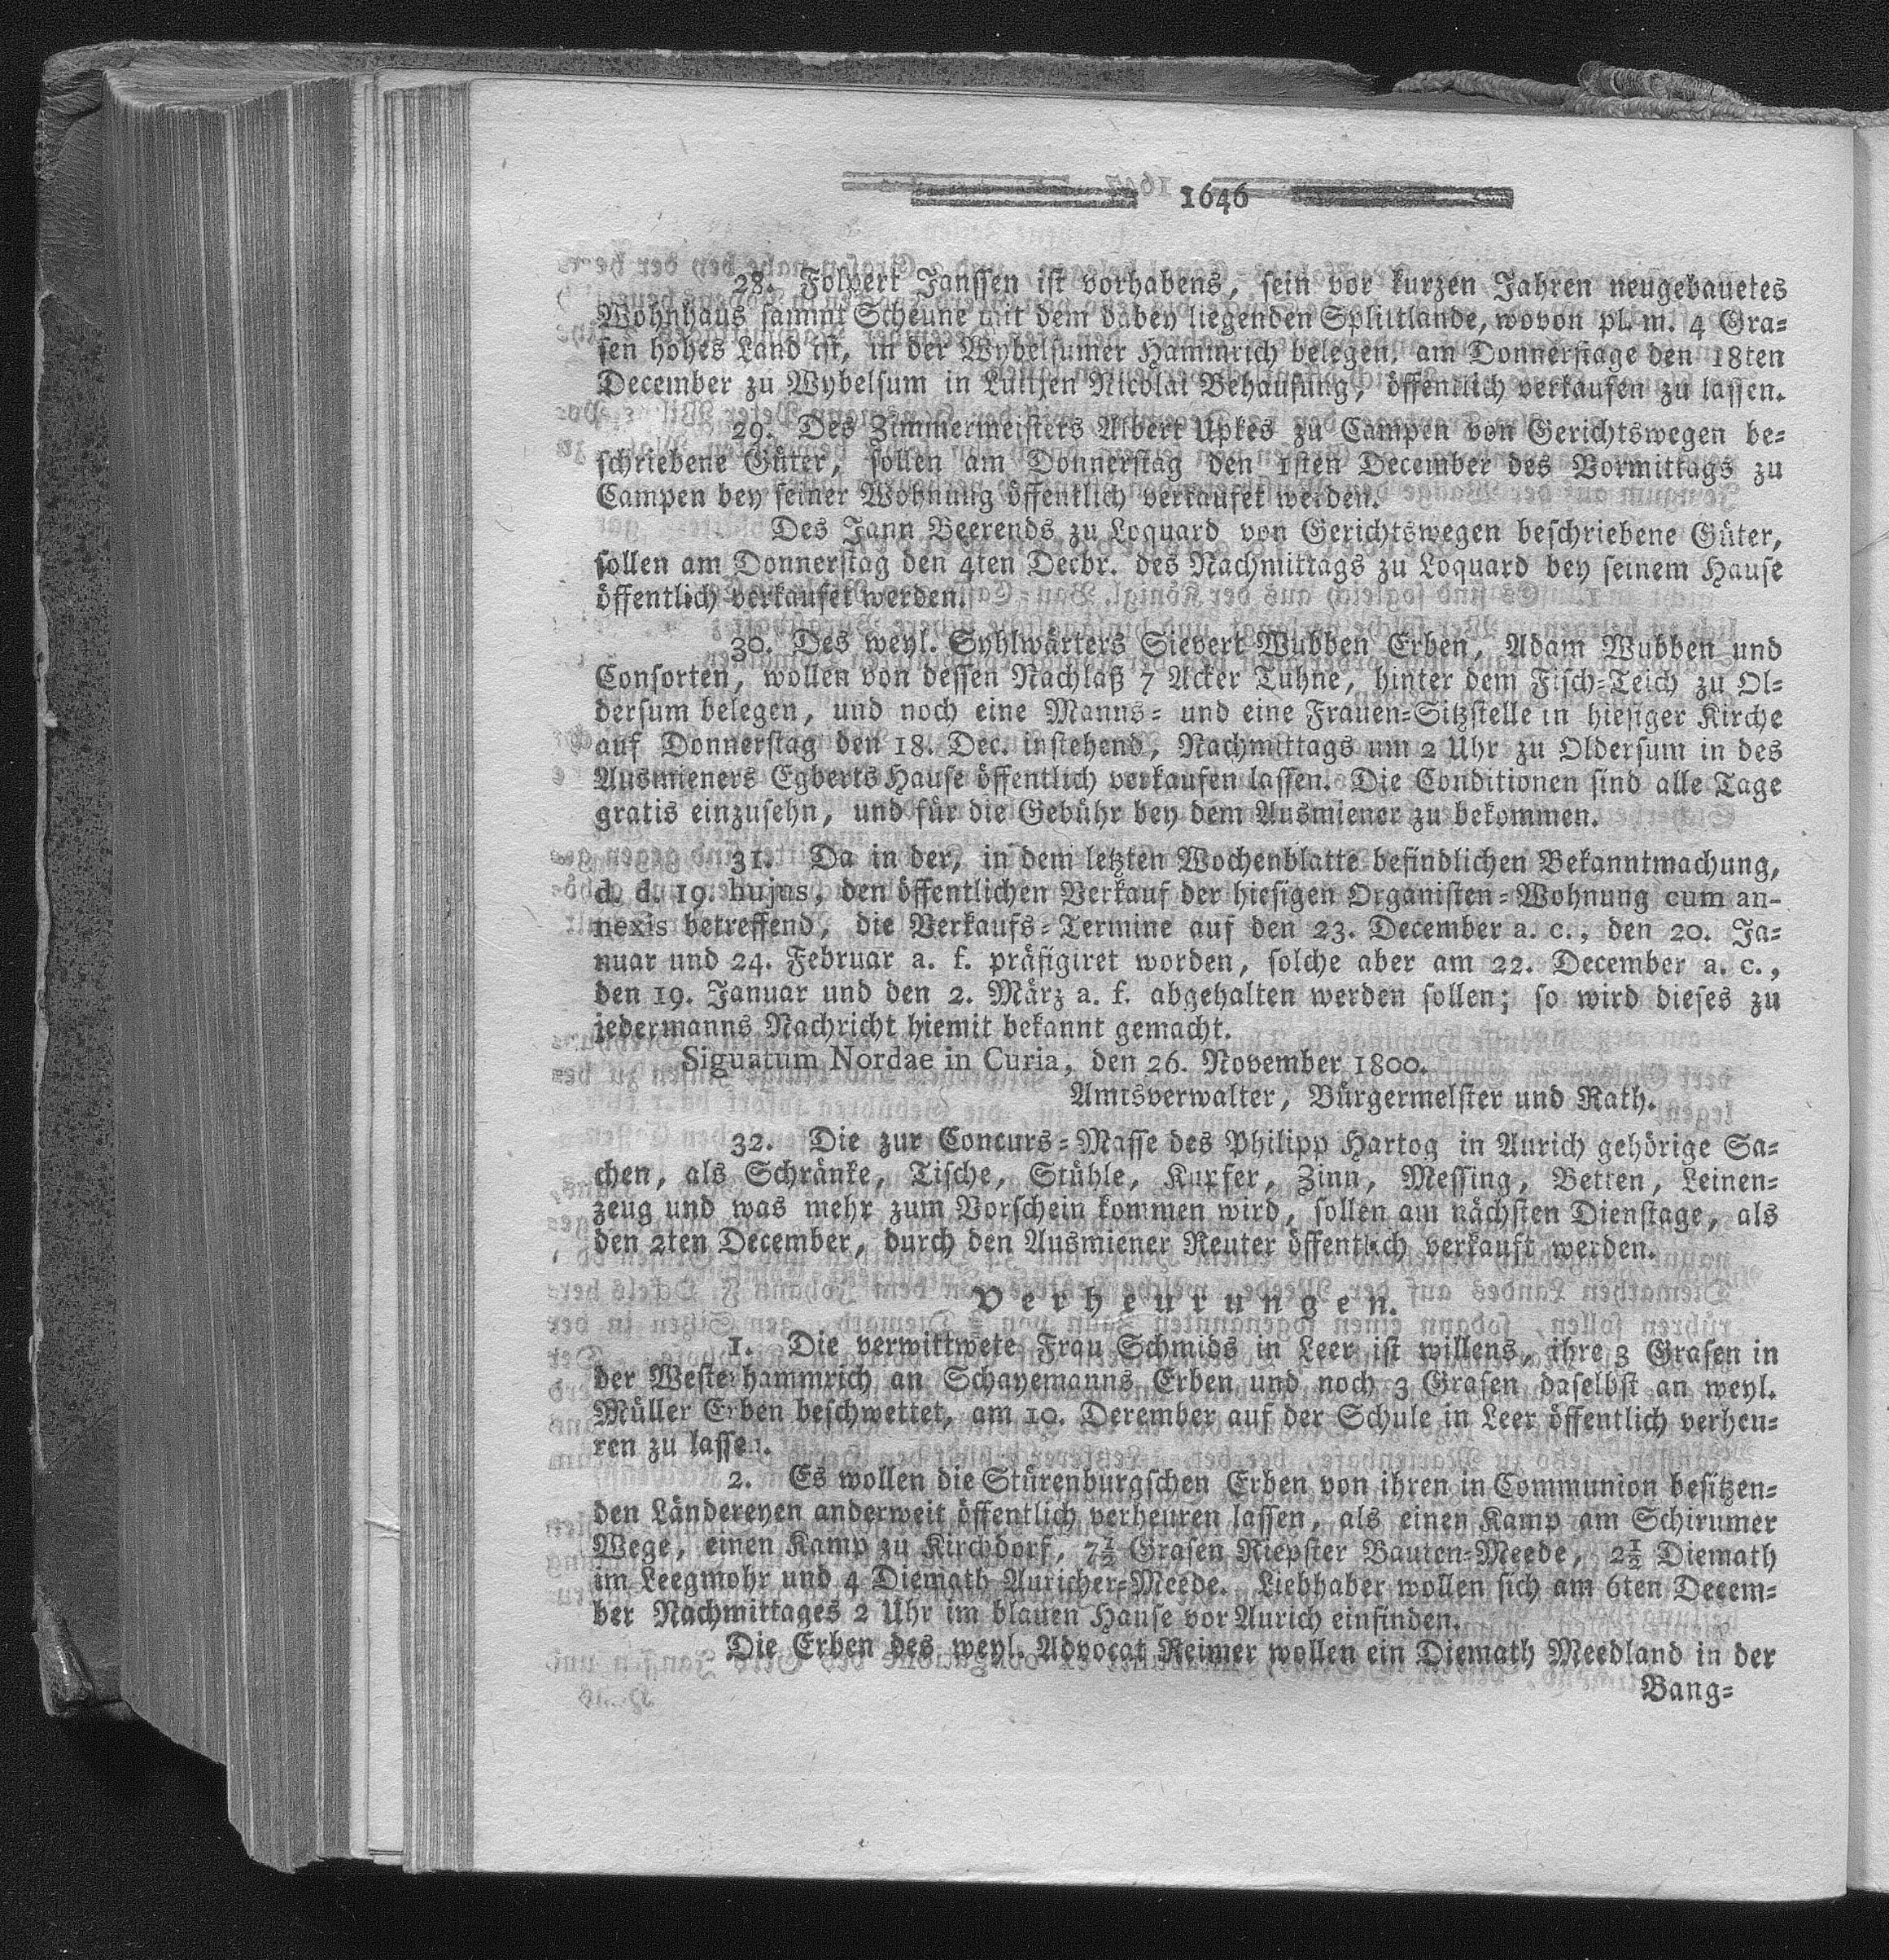 1646
28. Folpert Janssen ist vorhabens, sein vor kurzen Jahren neugebauetes
Wohnhaus sammt Scheune mit dem dabey liegenden Splittlande, wovon pl. m. 4 Gra-
sen hohes Land ist, in der Wybelsumer Hammrich belegen, am Donnerstage den 18ten
December zu Wybelsum in Luitjen Nicolai Behausung, öffentlich verkaufen zu lassen.
29. Des Zimmermeisters Albert Upkes zu Campen von Gerichtswegen be-
schriebene Güter, sollen am Donnerstag den 1sten December des Vormittags zu
Campen bey seiner Wohnung öffentlich verkaufet werden.
Des Jann Beerends zu Loquard von Gerichtswegen beschriebene Güter,
sollen am Donnerstag den 4ten Decbr. des Nachmittags zu Loquard bey seinem Hause
öffentlich verkaufet werden.
30. Des weyl. Syhlwärters Sievert Wubben Erben, Adam Wubben und
Consorten, wollen von dessen Nachlaß 7 Acker Tuhne, hinter dem Fisch-Teich zu Ol-
dersum belegen, und noch eine Manns- und eine Frauen-Sitzstelle in hiesiger Kirche
auf Donnerstag den 18. Dec. instehend, Nachmittags um 2 Uhr zu Oldersum in des
Ausmieners Egberts Hause öffentlich verkaufen lassen. Die Conditionen sind alle Tage
gratis einzusehn, und für die Gebühr bey dem Ausmiener zu bekommen.
31. Da in der, in dem letzten Wochenblatte befindlichen Bekanntmachung,
d. d. 19. hujus, den öffentlichen Verkauf der hiesigen Organisten-Wohnung cum an-
nexis betreffend, die Verkaufs-Termine auf den 23. December a. c., den 20. Ja-
nuar und 24. Februar a. f. präfigiret worden, solche aber am 22. December a. c.,
den 19. Januar und den 2. März a. f. abgehalten werden sollen; so wird dieses zu
jedermanns Nachricht hiemit bekannt gemacht.
Siguatum Nordae in Curia, den 26. November 1800.
Amtsverwalter, Bürgermelster und Rath.
32. Die zur Concurs-Masse des Philipp Hartog in Aurich gehörige Sa-
chen, als Schränke, Tische, Stühle, Kupfer, Zinn, Messing, Betten, Leinen-
zeug und was mehr zum Vorschein kommen wird, sollen am nächsten Dienstage, als
den 2ten December, durch den Ausmiener Reuter öffentlich verkauft werden.
Verheurungen.
1. Die verwittwete Frau Schmids in Leer ist willens, ihre 3 Grasen in
der Westerhammrich an Schayemanns Erben und noch 3 Grasen daselbst an weyl.
Müller Erben beschwettet, am 10. Derember auf der Schule in Leer öffentlich verheu-
ren zu lassen.
2. Es wollen die Stürenburgschen Erben von ihren in Communion besitzen-
den Ländereyen anderweit öffentlich verheuren lassen, als einen Kamp am Schirumer
Wege, einen Kamp zu Kirchdorf, 7½ Grasen Riepster Bauten-Meede, 2½ Diemath
im Leegmohr und 4 Diemath Auricher-Meede. Liebhaber wollen sich am 6ten Decem-
ber Nachmittages 2 Uhr im blauen Hause vor Aurich einfinden.
Die Erben des weyl. Advocat Reimer wollen ein Diemath Meedland in der
Bang-